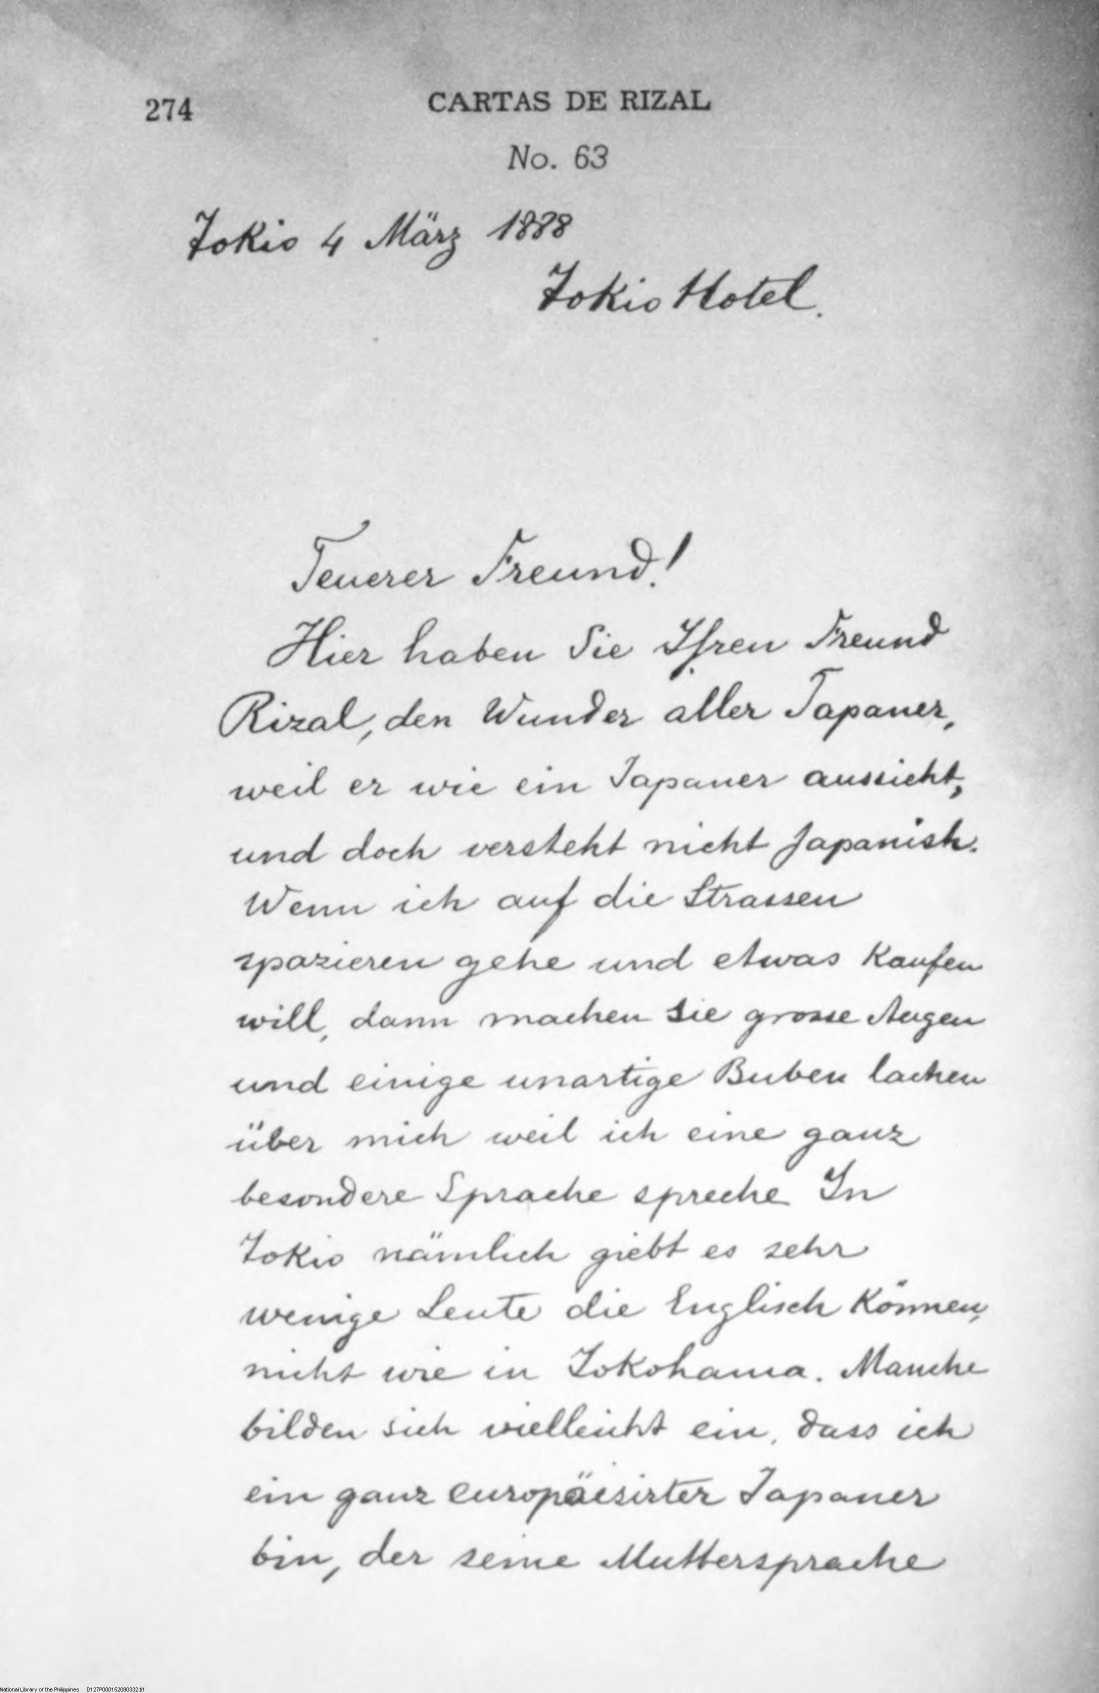 274
CARTAS DE RIZAL
No. 63
Tokio 4 März 1888
Tokio Hotel.
Teuerer Freund!
Hier haben Sie Ihren Freund
Rizal, den Wunder aller Japaner,
weil er wie ein Japaner aussieht,
und doch versteht nicht Japanish.
Wenn ich auf die Strassen
spazieren gehe und etwas kaufen
will, dann machen sie grosse Augen
und einige unartige Buben lachen
über mich weil ich eine ganz
besondere Sprache spreche In
Tokio nämlich giebt es sehr
wenige Leute die Englisch können,
nicht wie in Yokohama. Manche
bilden sich vielleicht ein, dass ich
ein ganz europäesirter Japaner
bin, der seine Muttersprache
National Library of the Philippines